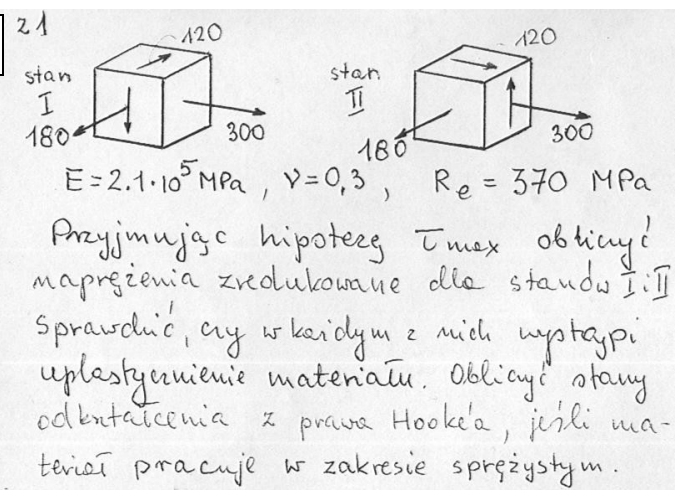 z1
120 120
stan stan
I II
180 300 180 300
E = 2.1·10⁵ MPa, ν = 0,3, Re = 370 MPa
Przyjmując hipotezę τmax obliczyć
naprężenia zredukowane dla stanów I i II
Sprawdzić, czy w każdym z nich wystąpi
uplastycznienie materiału. Obliczyć stany
odkształcenia z prawa Hooke'a, jeśli ma-
teriał pracuje w zakresie sprężystym.